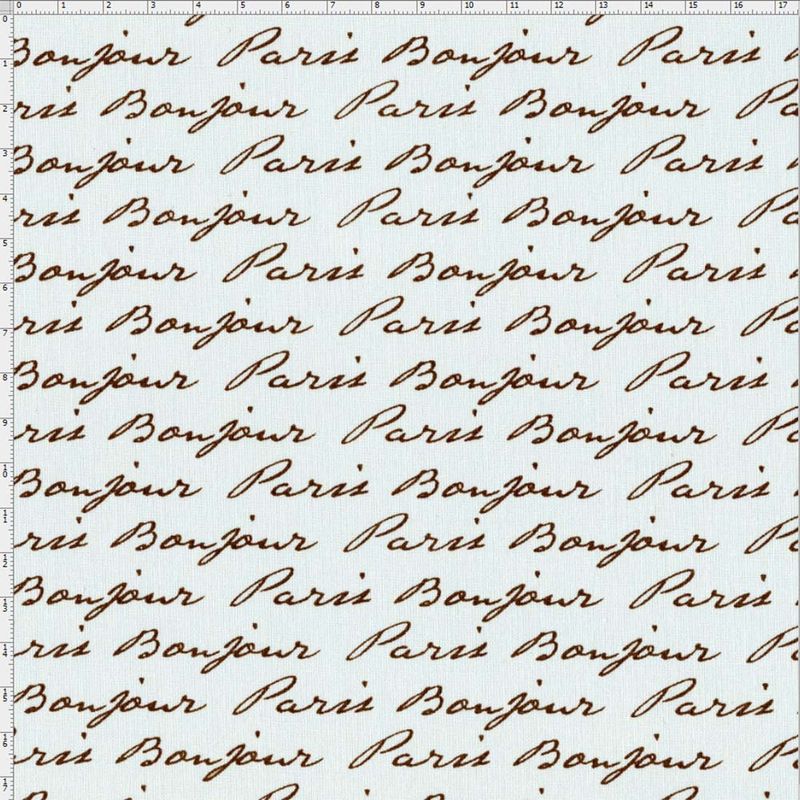 0 1 2 3 4 5 6 7 8 9 10 11 12 13 14 15 16 17
0 1 2 3 4 5 6 7 8 9 10 11 12 13 14 15 16 17
Bonjour Paris Bonjour Paris
ris Bonjour Paris Bonjour Pa
Bonjour Paris Bonjour Paris
ris Bonjour Paris Bonjour Pa
Bonjour Paris Bonjour Paris
ris Bonjour Paris Bonjour Pa
Bonjour Paris Bonjour Paris
ris Bonjour Paris Bonjour Pa
Bonjour Paris Bonjour Paris
ris Bonjour Paris Bonjour Pa
Bonjour Paris Bonjour Paris
ris Bonjour Paris Bonjour Pa
Bonjour Paris Bonjour Paris
ris Bonjour Paris Bonjour Pa